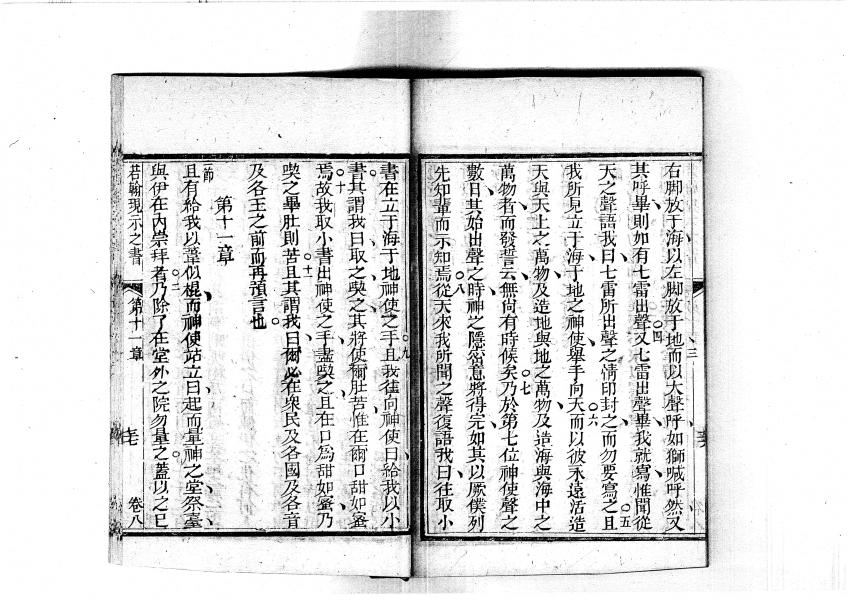 右脚放于海以左脚放于地而以大聲呼如獅喊呼然又
三
其呼畢則如有七雷出聲又七雷出聲畢我就寫惟聞從
四
天之聲語我曰七雷所出聲之情印封之而勿要寫之且
五
我所見立于海于地之神使舉手向天而以彼永遠活造
六
天與天上之萬物及造地與地之萬物及造海與海中之
萬物者而發誓云無尚有時候矣乃於第七位神使聲之
七
數日其始出聲之時神之隱密意將得完如其以厥僕列
先知輩而示知焉從天來我所聞之聲復語我曰往取小
八
書在立于海于地神使之手且我徃向神使曰給我以小
九
書其謂我曰取之喫之其將使爾肚苦惟在爾口甜如蜜
焉故我取小書出神使之手盡喫之且在口爲甜如蜜乃
十
喫之畢肚則苦且其謂我曰爾必在衆民及各國及各音
十一
及各王之前而再預言也
第十一章
一節
且有給我以葦似棍而神使站立曰起而量神之堂祭臺
與伊在內崇拜者乃除了在堂外之院勿量之蓋以之已
二
若翰現示之書
第十一章
卷八